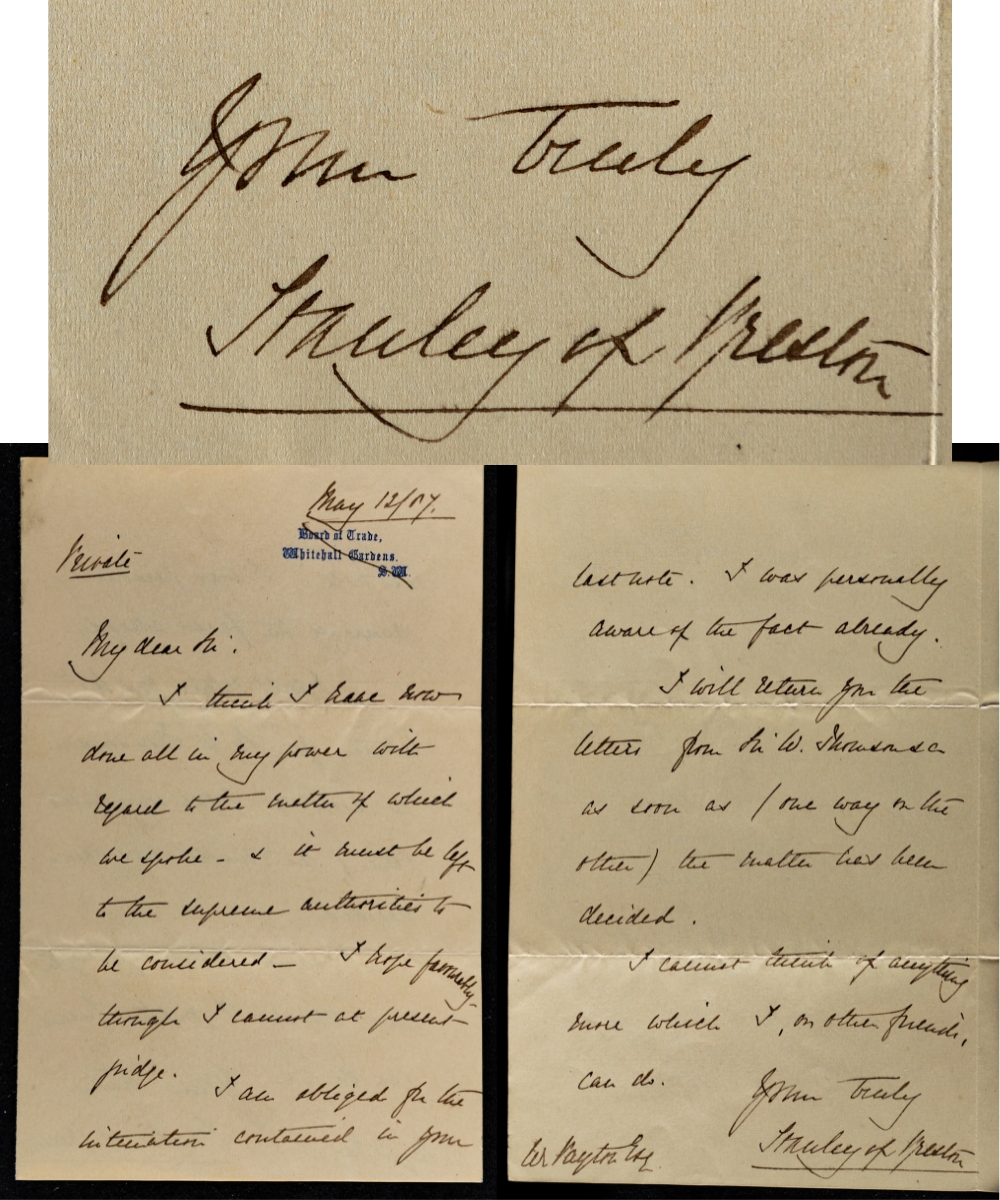 Yours Truly
Stanley of Preston
May 12/87.
Board of Trade,
Whitehall Gardens.
S.W.
Private
My dear Sir.
I think I have now
done all in my power with
regard to the matter of which
we spoke - & it must be left
to the supreme authorities to
be considered - I hope favorably -
though I cannot at present
judge.
I am obliged for the
intimation contained in your
last note. I was personally
aware of the fact already.
I will return you the
letters from Sir W. Thomson &c
as soon as (one way or the
other) the matter has been
decided.
I cannot think of anything
more which I, or other friends,
can do.
Yours Truly
Stanley of Preston
Payton Esq